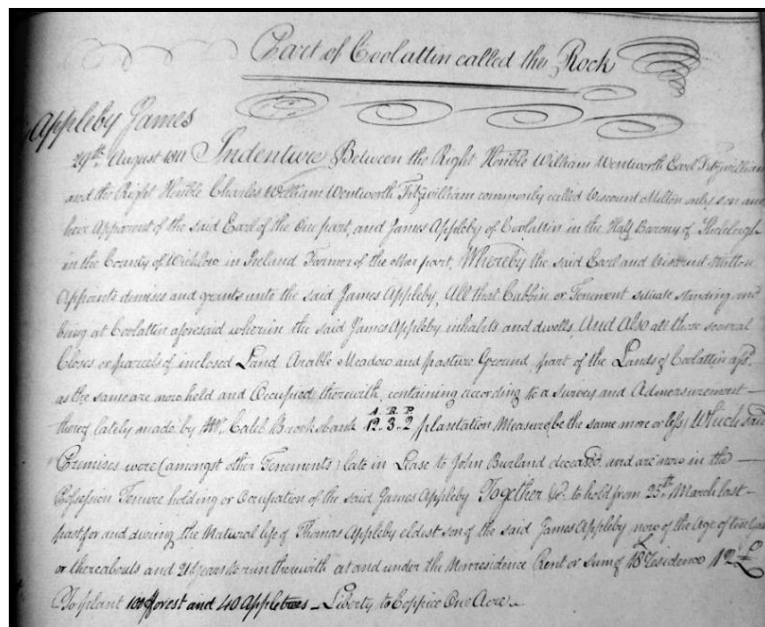 Part of Coolattin called the Rock
Appleby James
29th August 1811 Indenture Between the Right Honble William Wentworth Earl Fitzwilliam
and the Right Honble Charles William Wentworth Fitzwilliam commonly called Viscount Milton only son and
heir Apparent of the said Earl of the One part, and James Appleby of Coolattin in the Half Barony of Shilelegh
in the County of Wicklow in Ireland Farmer of the other part, Whereby the said Earl and Viscount Milton
Appoints demises and grants unto the said James Appleby, All that Cabbin or Tenement situate standing and
being at Coolattin aforesaid wherein the said James Appleby inhabits and dwells, And Also all those several
Closes or parcels of inclosed Land Arable Meadow and pasture Ground, part of the Lands of Coolattin afsd.
as the same are now held and Occupied therewith, containing according to a Survey and Admeasurement
thereof lately made by Mr. Caleb Brooksbank A. R. P. 12.3.2 plantation Measure be the same more or less, Which said
Premises were (amongst other Tenements) late in Lease to John Burland deceased, and are now in the
Possession Tenure holding or Occupation of the said James Appleby Together &c. to hold from 25th March last
past for and during the Natural life of Thomas Appleby eldest son of the said James Appleby now of the Age of
or thereabouts and 21 years to run therewith at and under the Nonresidence Rent or Sum of 18£ Residence 12£
To plant 100 forest and 40 Appletrees - Liberty to Coppice One Acre